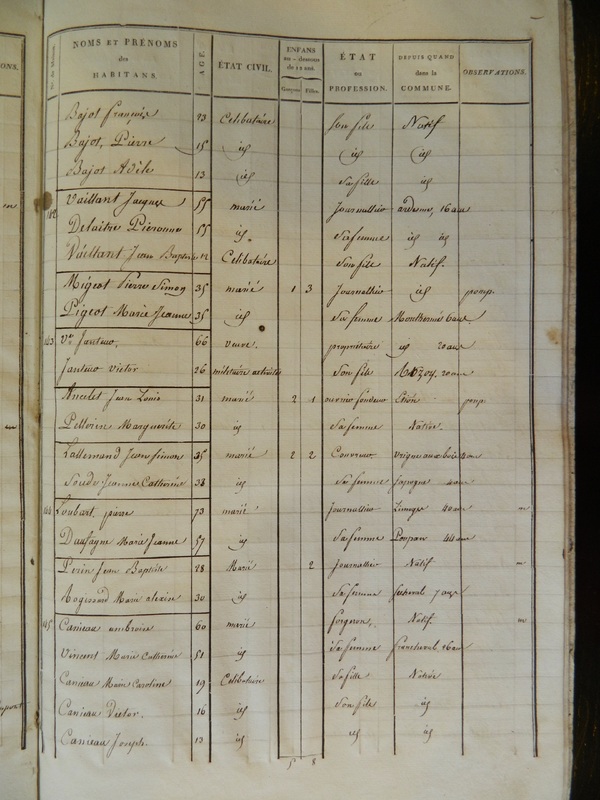 NOMS ET PRÉNOMS des HABITANS. AGE ÉTAT CIVIL. ENFANS au-dessous de 12 ans. Garçons Filles. ÉTAT ou PROFESSION. DEPUIS QUAND dans la COMMUNE. OBSERVATIONS.
Bajot françois 23 Celibataire son fils Natif
Bajot, Pierre 15 id id id
Bajot Adèle 13 id sa fille id
Vaillant Jacques 55 marié Journallier ardenne, 16 ans
Delaitre Pieronne 55 id. sa femme id id
Vaillant Jean Baptiste 12 Celibataire son fils Natif.
Migeot Pierre Simon 35 marié 1 3 Journallier id pomp.
Pigeot Marie Jeanne 35 id sa femme Monthermé 6 ans
143 Ve Jantwo, 66 veuve. propriétaire id 20 ans
Jantwo victor 26 militaire son fils 20 ans
Ancelet Jean Louis 31 marié 2 1 ouvrier fondeur pomp.
Pellerin Marguerite 30 id sa femme Native.
Lallemand Jean Simon 35 marié 2 2 Couvreur vrigne aux bois 4 ans
Jeanne Catherine 38 id sa femme 4 ans
144 Loubart, pierre 73 marié Journallier Limoges 40 ans
Marie Jeanne 57 id sa femme 44 ans
Perin Jean Baptiste 28 Marié 2 Journallier Natif
Marie 30 id sa femme 7 ans
145 Caniaux ambroise 60 marié Natif
Vincent Marie Catherine 51 id sa femme francheval
Caniaux Marie Caroline 19 Celibataire sa fille Native
Caniaux Victor. 16 id son fils id
Caniaux Joseph. 13 id id id
5 8